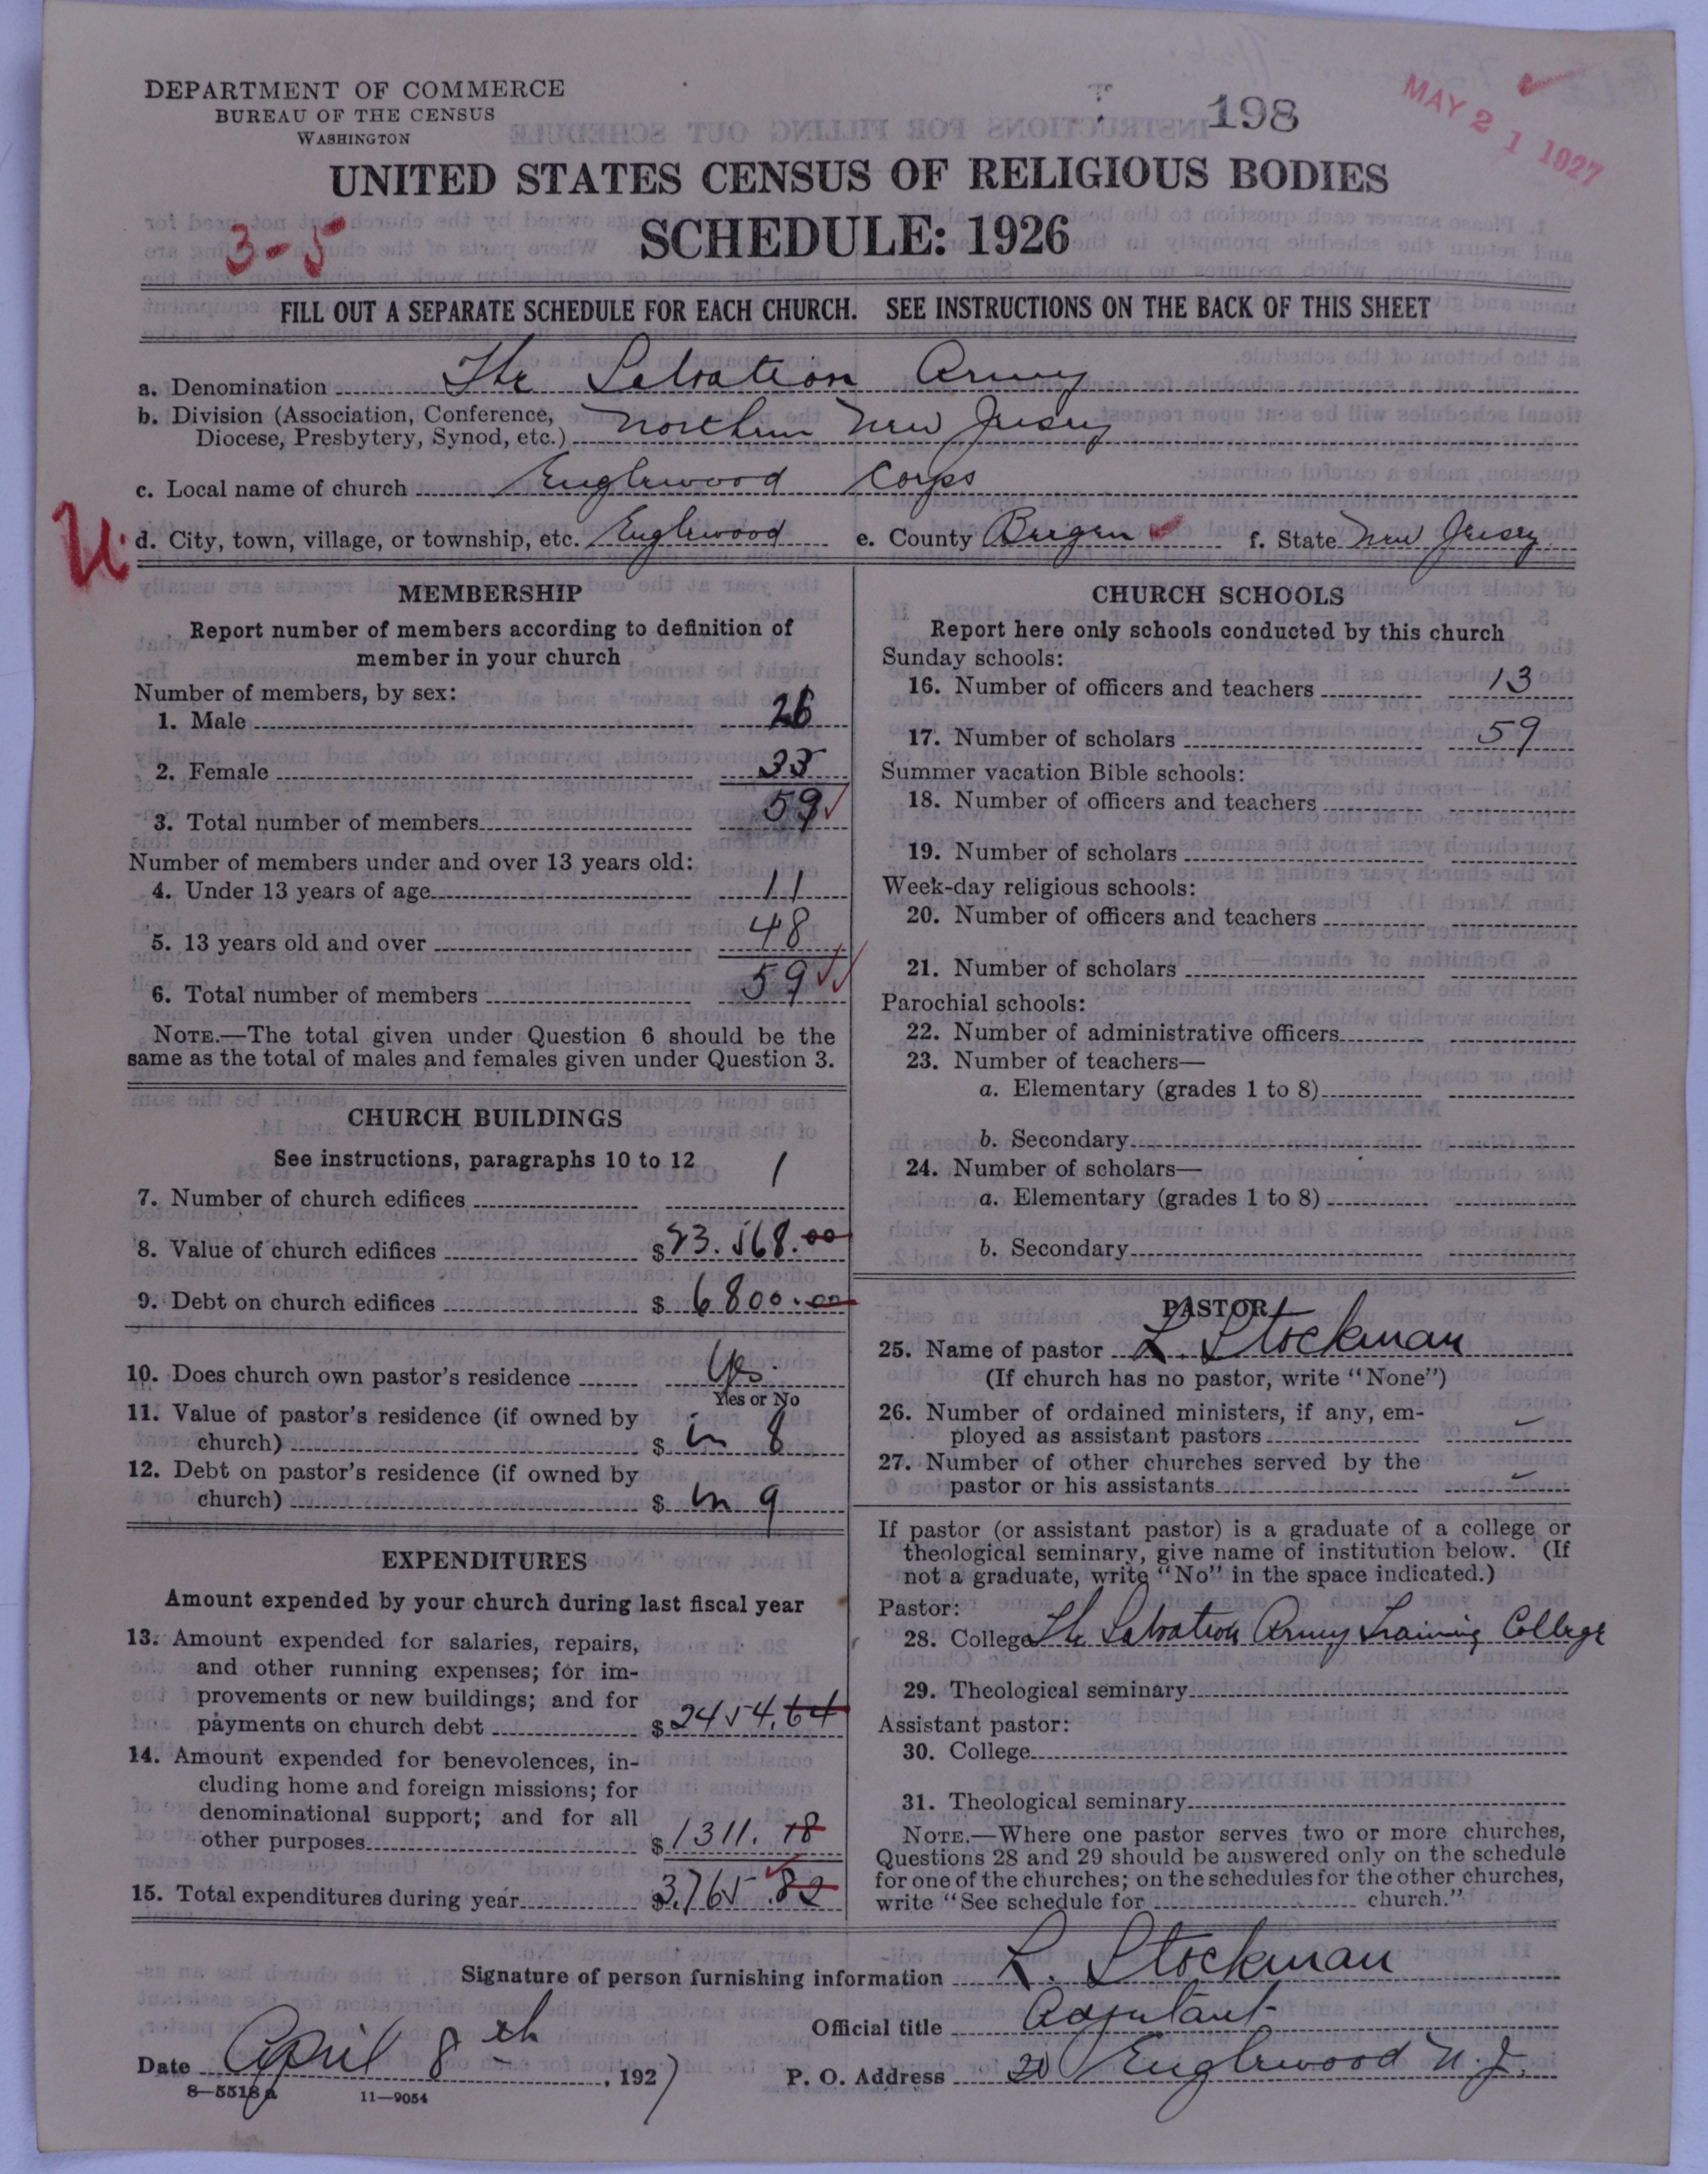 DEPARTMENT OF COMMERCE
BUREAU OF THE CENSUS
WASHINGTON
198
MAY 21 1927
UNITED STATES CENSUS OF RELIGIOUS BODIES
3-5
SCHEDULE: 1926
FILL OUT A SEPARATE SCHEDULE FOR EACH CHURCH. SEE INSTRUCTIONS ON THE BACK OF THIS SHEET
a. Denomination The Salvation Army
b. Division (Association, Conference,
Diocese, Presbytery, Synod, etc.) Northern New Jersey
c. Local name of church Englewood Corps
U.
d. City, town, village, or township, etc. Englewood e. County Bergen f. State New Jersey.
MEMBERSHIP
Report number of members according to definition of
member in your church
Number of members, by sex:
1. Male 26
2. Female 33
3. Total number of members 59
Number of members under and over 13 years old:
4. Under 13 years of age 11
5. 13 years old and over 48
6. Total number of members 59
NOTE.—The total given under Question 6 should be the
same as the total of males and females given under Question 3.
CHURCH BUILDINGS
See instructions, paragraphs 10 to 12
7. Number of church edifices 1
8. Value of church edifices $ 23.568.00
9. Debt on church edifices $ 6800.00
10. Does church own pastor's residence Yes
Yes or No
11. Value of pastor's residence (if owned by
church) $ in 8
12. Debt on pastor's residence (if owned by
church) $ in 9
EXPENDITURES
Amount expended by your church during last fiscal year
13. Amount expended for salaries, repairs,
and other running expenses; for im-
provements or new buildings; and for
payments on church debt $ 2454.64
14. Amount expended for benevolences, in-
cluding home and foreign missions; for
denominational support; and for all
other purposes $ 1311.18
15. Total expenditures during year $ 3765.82
CHURCH SCHOOLS
Report here only schools conducted by this church
Sunday schools:
16. Number of officers and teachers 13
17. Number of scholars 59
Summer vacation Bible schools:
18. Number of officers and teachers
19. Number of scholars
Week-day religious schools:
20. Number of officers and teachers
21. Number of scholars
Parochial schools:
22. Number of administrative officers
23. Number of teachers—
a. Elementary (grades 1 to 8)
b. Secondary
24. Number of scholars—
a. Elementary (grades 1 to 8)
b. Secondary
PASTOR
25. Name of pastor L. Stockman
(If church has no pastor, write "None")
26. Number of ordained ministers, if any, em-
ployed as assistant pastors
27. Number of other churches served by the
pastor or his assistants
If pastor (or assistant pastor) is a graduate of a college or
theological seminary, give name of institution below. (If
not a graduate, write "No" in the space indicated.)
Pastor:
28. College The Salvation Army Training College
29. Theological seminary
Assistant pastor:
30. College
31. Theological seminary
NOTE.—Where one pastor serves two or more churches,
Questions 28 and 29 should be answered only on the schedule
for one of the churches; on the schedules for the other churches,
write "See schedule for church."
Signature of person furnishing information L. Stockman
Official title Adjutant
Date April 8th, 1927
P. O. Address Englewood N.J.
8—5518a 11—9054